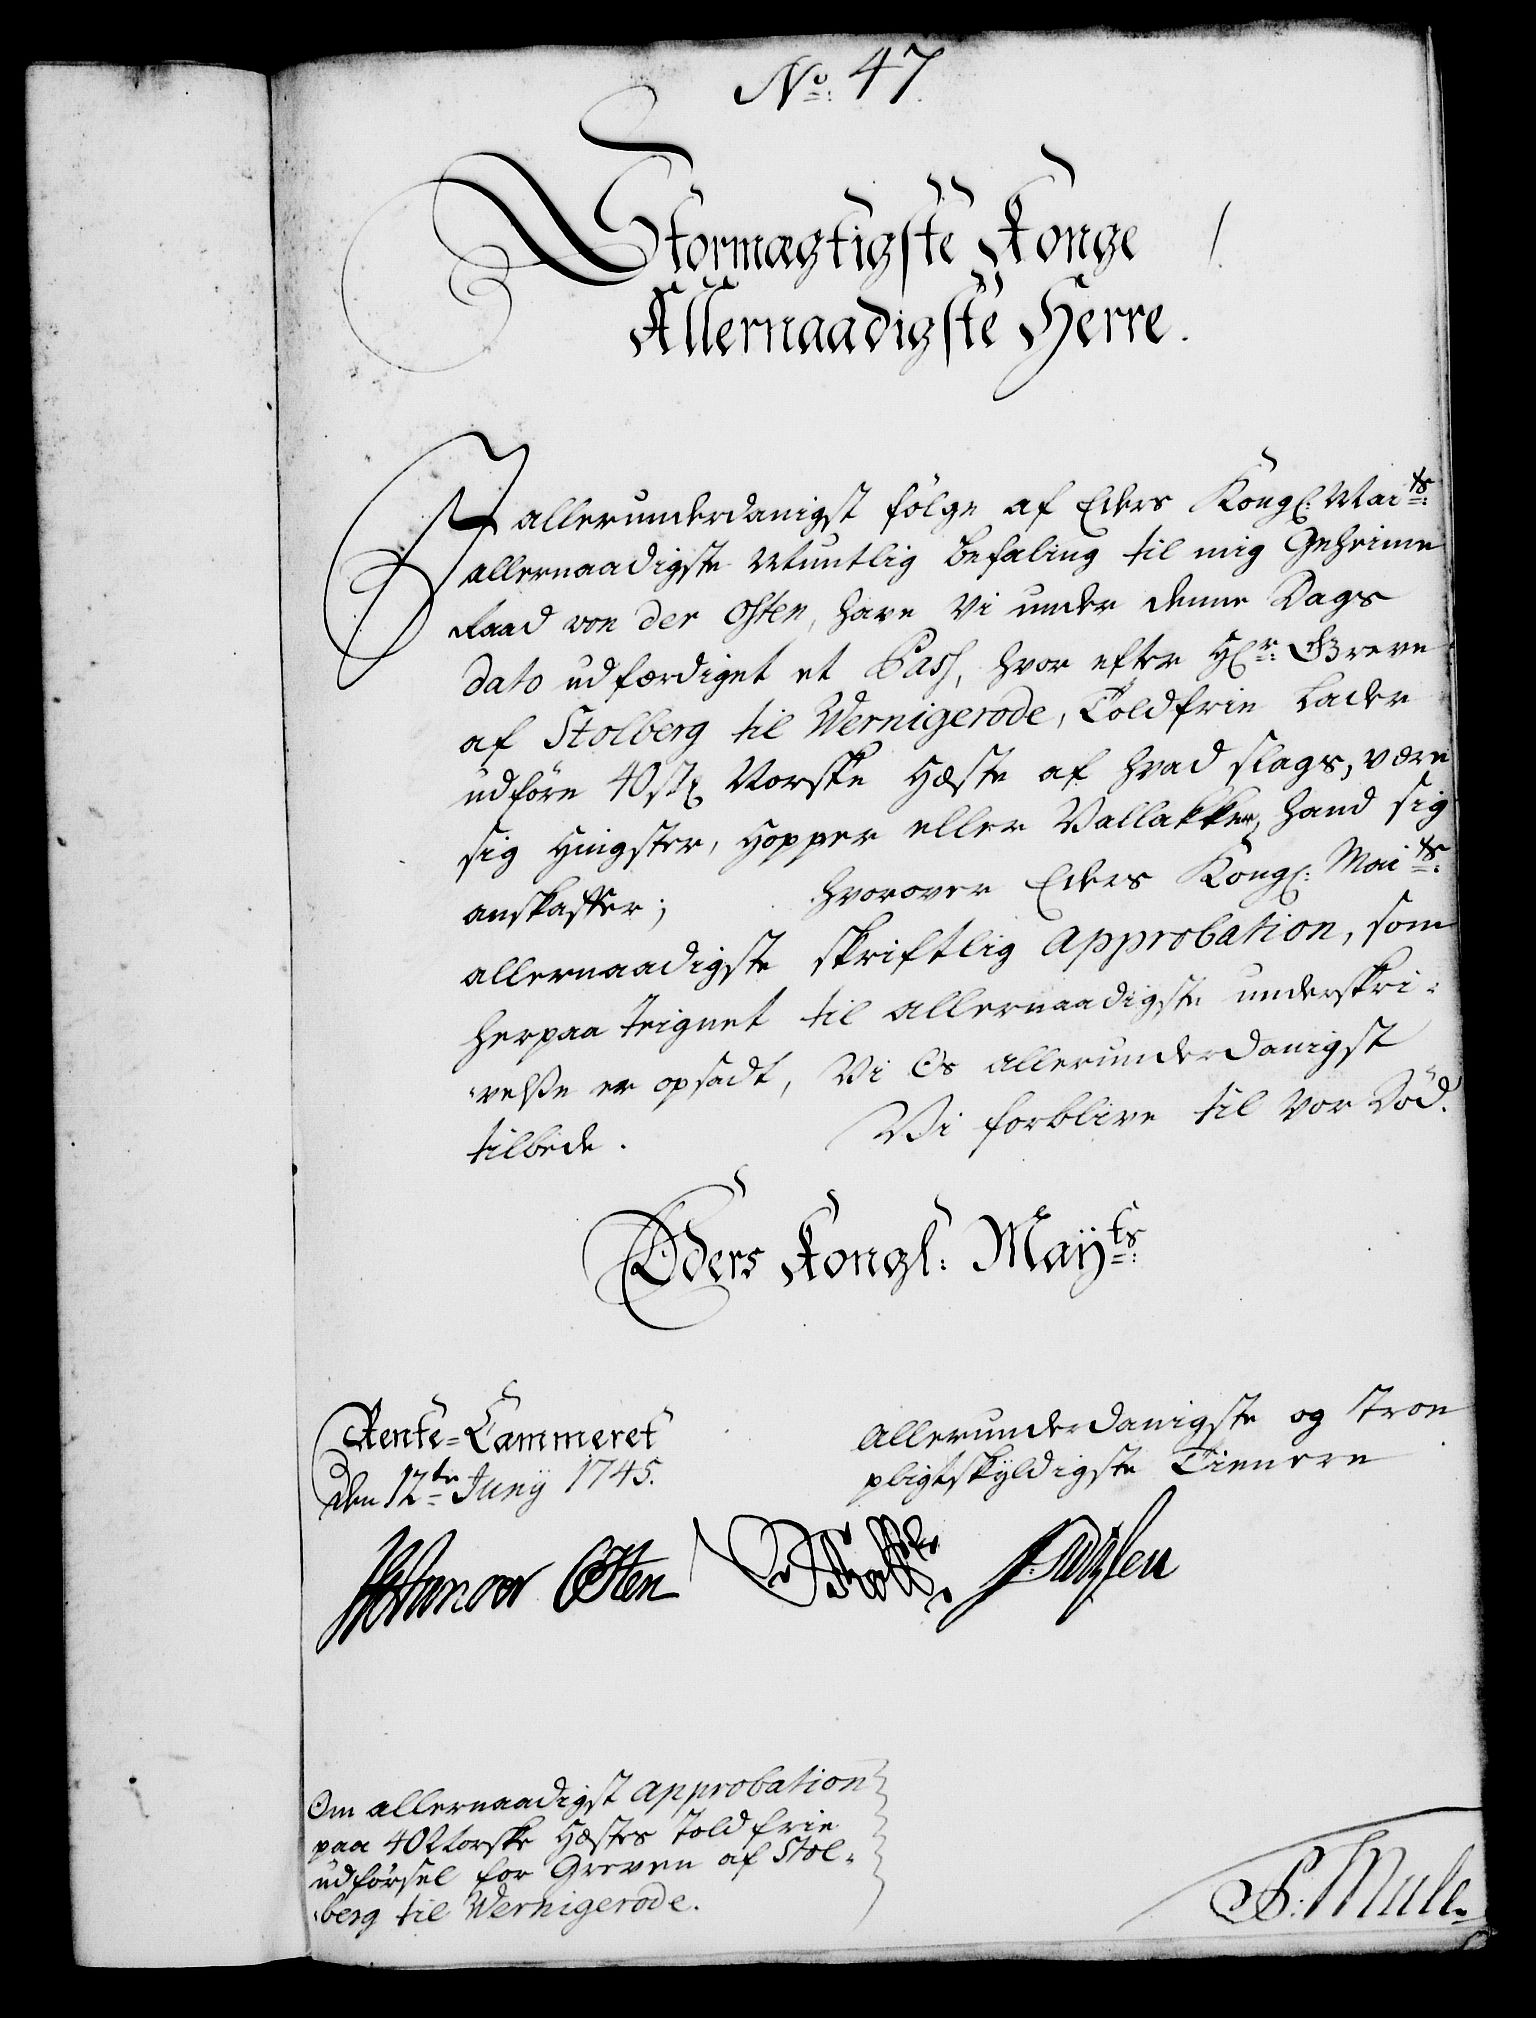 No: 47.
Stormægtigste Konge
Allernaadigste Herre.
I allerunderdanigst følge af Eders Kongl: Maits:
allernaadigste Muntlig befaling til mig Geheime
Raad von der Osten, have Vi under denne Dags
dato udfærdiget et Pass, hvor efter Hr: Greve
af Stolberg til Wernigerode, Toldfrie lader
udføre 40 st Norske Hæste af hvad slags, være
sig Hingster, Hopper eller Vallakker, hand sig
anskaffer; hvorover Eders Kongl: Maits:
allernaadigste skriftlig Approbation, som
herpaa teignet til allernaadigste underskri-
velse er opsadt, Vi Os allerunderdanigst
tilbede. Vi forblive til vor Død.
Eders Kongl: Mayts:
Rente-Cammeret
den 12te Juny 1745.
Allerunderdanigste og troe
pligtskyldigste Tienere
Osten
Om allernaadigst Approbation
paa 40 Norske Hæstes toldfrie
udførsel for Greven af Stol-
berg til Wernigerode.
P: Mule